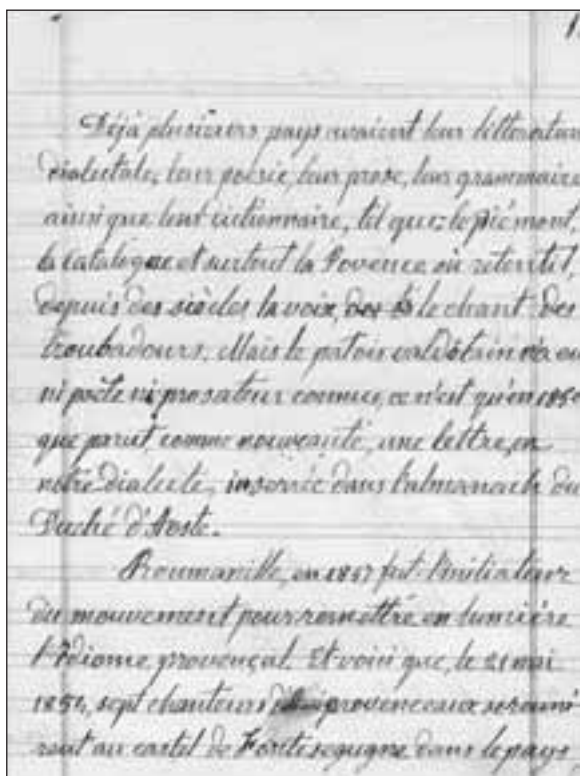 1
Déjà plusieurs pays avaient leur littératur
dialectale, leur poésie, leur prose, leur grammaire
ainsi que leur dictionnaire, tel que: le piémont,
la catalogne et surtout la Povence où retentit,
depuis des siècles, la voix, le chant des
troubadours. Mais le patois valdôtain n'a eu
ni poète ni prosateur connus, ce n'est qu'en 185
que parut, comme nouveauté, une lettre, en
notre dialecte, inserée dans l'almanach du
Duché d'Aoste.
Roumanille, en 1847 fut l'initiateur
du mouvement pour remettre en lumière
l'Idiome provençal. Et voici que, le 21 mai
1854, sept chanteurs provenceaux se réuni
rent au castel de Fontsegugne dans le pays